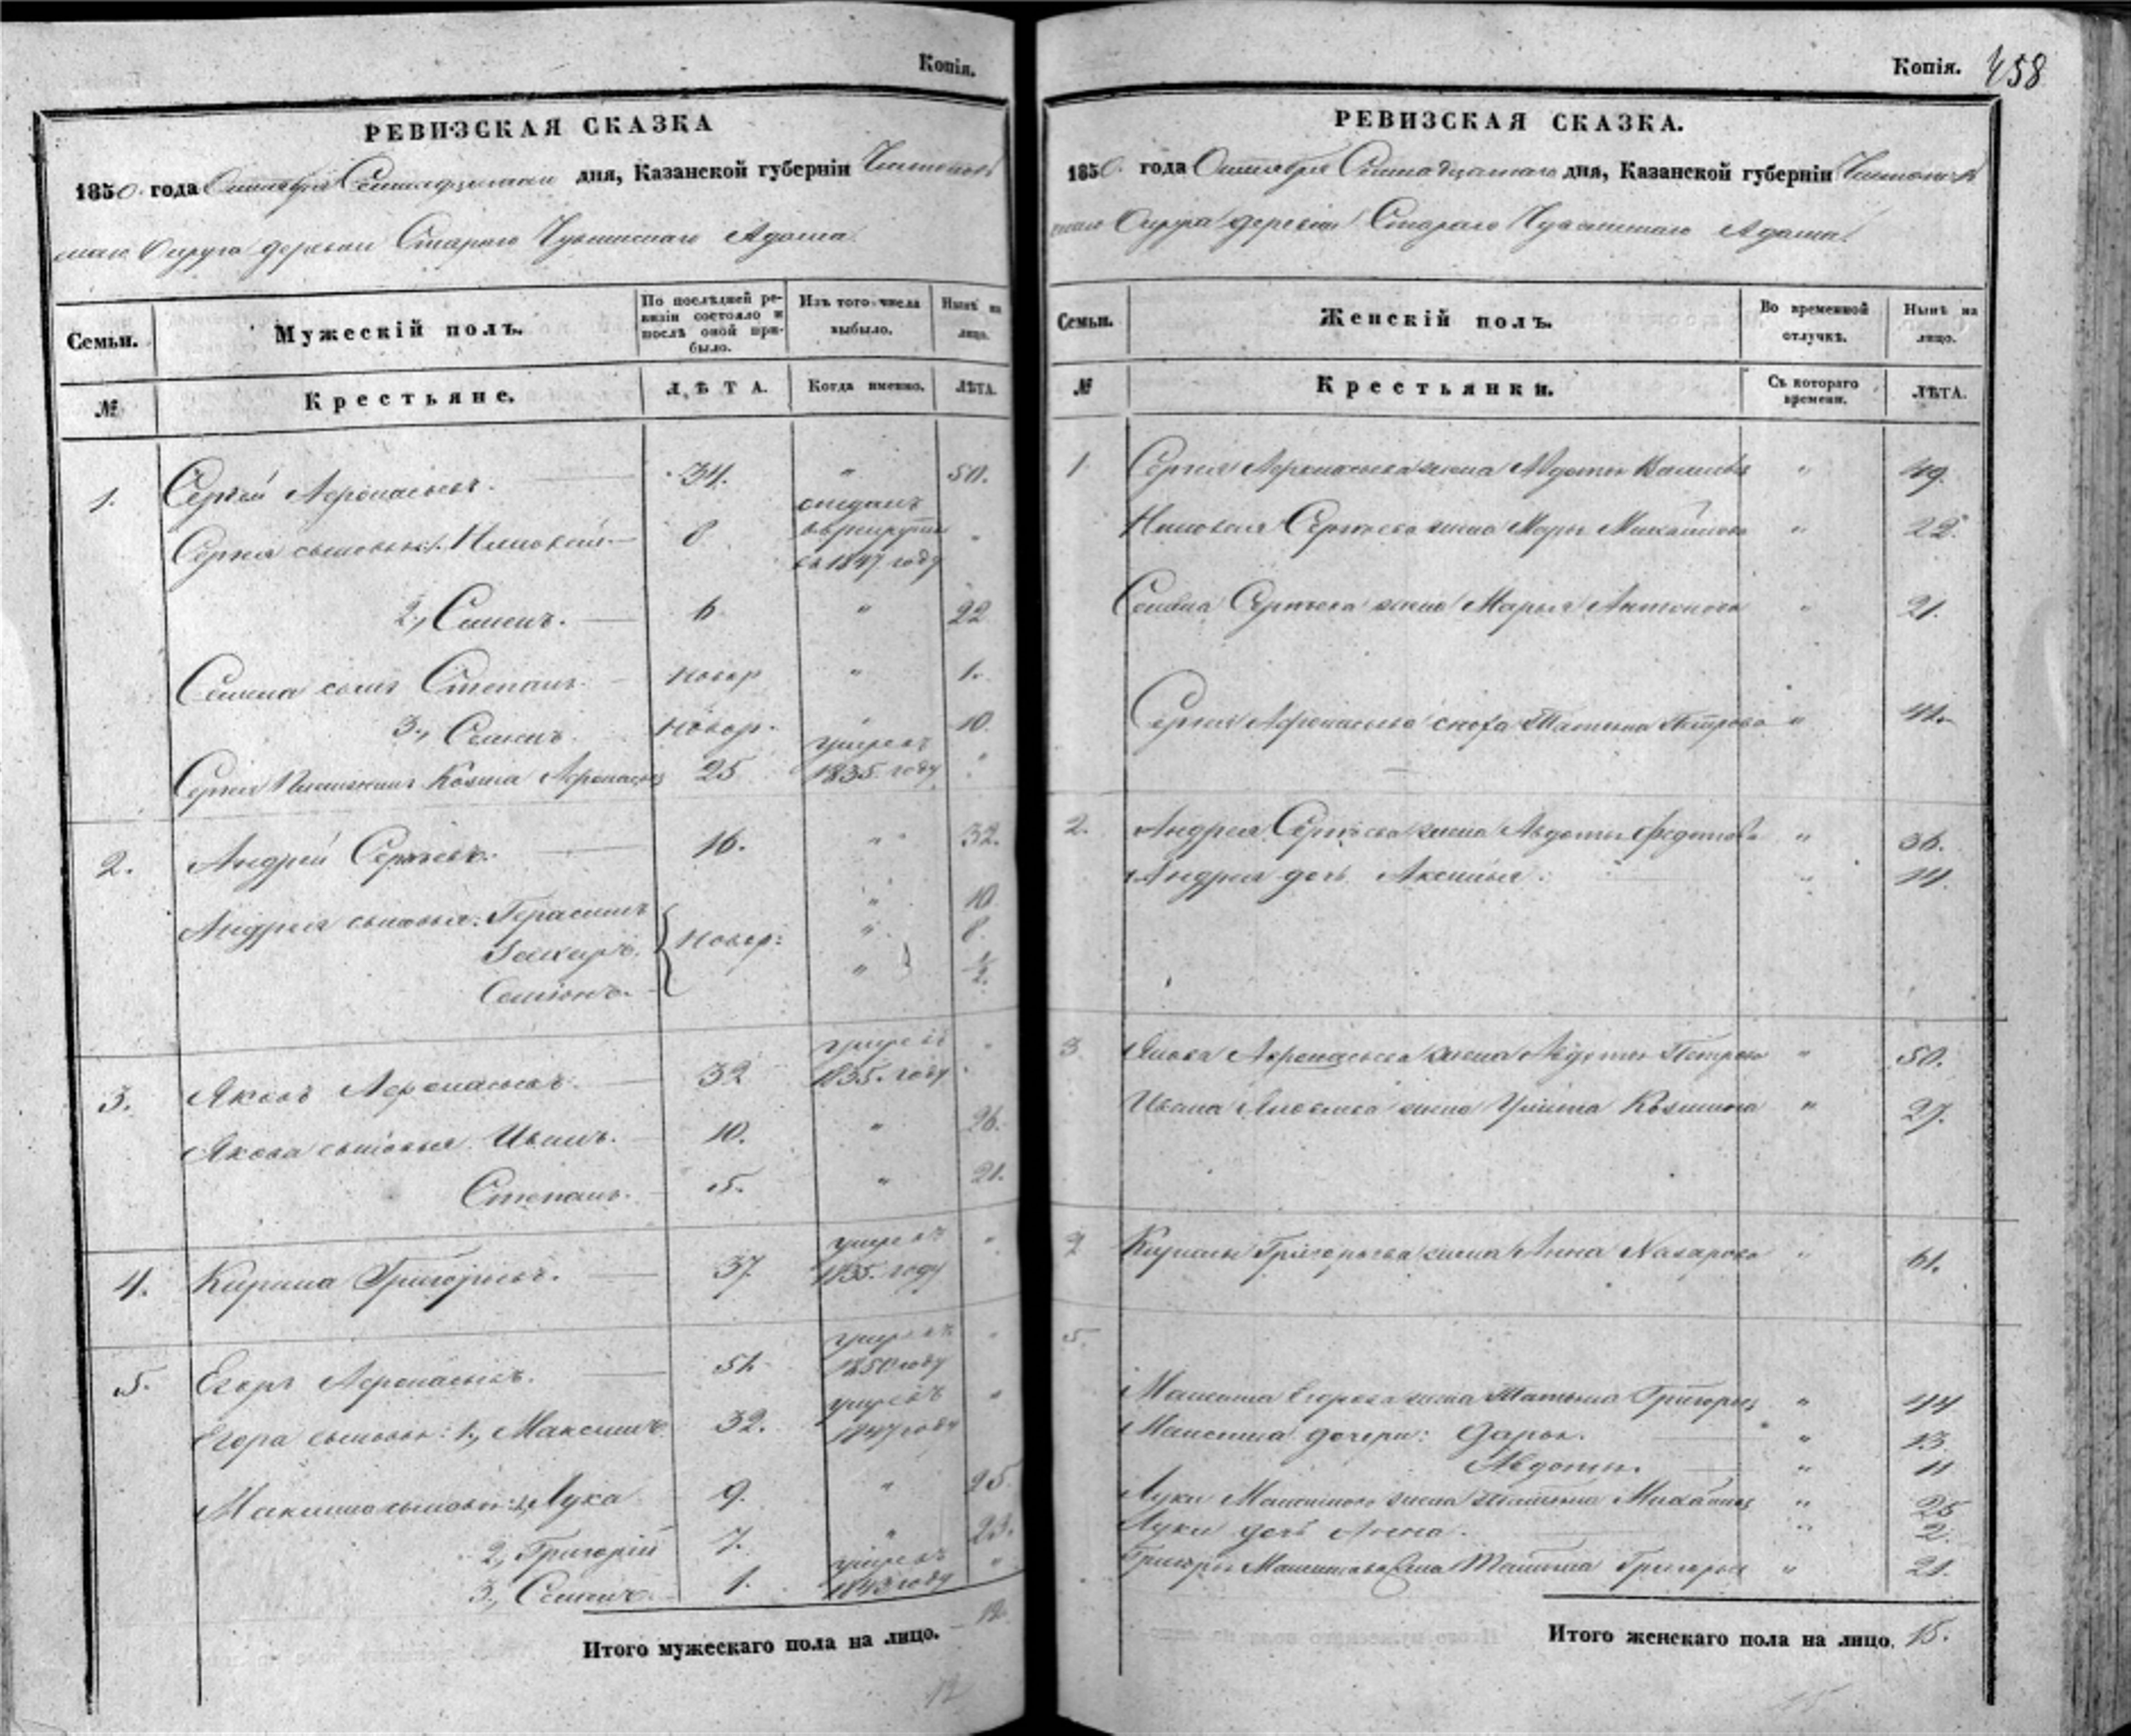 Копія.
РЕВИЗСКАЯ СКАЗКА
1850 года Октября дня, Казанской губерніи Чистополь
скаго Округа деревни Стараго Чувашскаго Адама
Семьи.
Мужескій полъ.
По послѣдней ре-
визіи состояло и
послѣ оной при-
было.
Изъ того числа
выбыло.
Нынѣ на
лицо.
№
Крестьяне.
ЛѢТА.
Когда именно.
ЛѢТА.
1. Сергѣй Афонасьевъ. 34. " 50.
Сергѣя сыновья: 1. 8 отданъ
в рекруты "
въ 1847 году
2, Семенъ. 6 " 22
Семена сынъ Степанъ. новор " 1.
3., Семенъ. новор. " 10.
Сергѣя Козма Афонасьевъ 25 умре въ
1835. году "
2. Андрей Сергѣевъ. 16. " 32.
Андрея сыновья: Герасимъ " 10
Захаръ. новор: " 8.
Семіонъ. " 1/2.
3. Яковъ Афонасьевъ. 32 умре въ
1835. году "
Якова сыновья Иванъ. 10. " 26.
Степанъ. 5. " 21.
4. Кирила Григорьевъ. 37. умре въ
1835. году "
5. Егоръ Афонасьевъ. 51 умре въ
1850 году "
Егора сыновья: 1., Максимъ 32. умре въ
1847 году "
Максима сыновья: 1, Лука 9. " 25.
2, Григорій 7. " 23.
3, Семенъ. 1. умре въ
1843 году "
Итого мужескаго пола на лицо. 12.
12
Копія. 458
РЕВИЗСКАЯ СКАЗКА.
1850. года Октября дня, Казанской губерніи Чистополь
скаго Округа деревни Стараго Чувашскаго Адама
Семьи.
Женскій полъ.
Во временной
отлучкѣ.
Нынѣ на
лицо.
№
Крестьянки.
Съ котораго
времени.
ЛѢТА.
1 Сергѣя Афонасьева жена Авдотья " 49.
Сергѣева жена Марья Михайлова " 22.
Семена Сергѣева жена Марья Антонова " 21.
Сергѣя Афонасьева сноха Татьяна Петрова "
2. Андрея Сергѣева жена Авдотья Федотова " 36.
Андрея дочь Аксинья. "
3 Якова Афонасьева жена Авдотья Петрова " 50.
Ивана Яковлева жена Козмина " 27.
4 Кирилы Григорьева жена Анна Назарова " 61.
5.
Максима Егорова жена Татьяна Григорьева " 44
Максима дочери: Дарья. " 13
Авдотья. " 11
Луки Максимова жена Татьяна Михайлова " 25
Луки дочь Анна. " 2.
Григорья Максимова жена Татьяна Григорьева " 21.
Итого женскаго пола на лицо. 15.
15